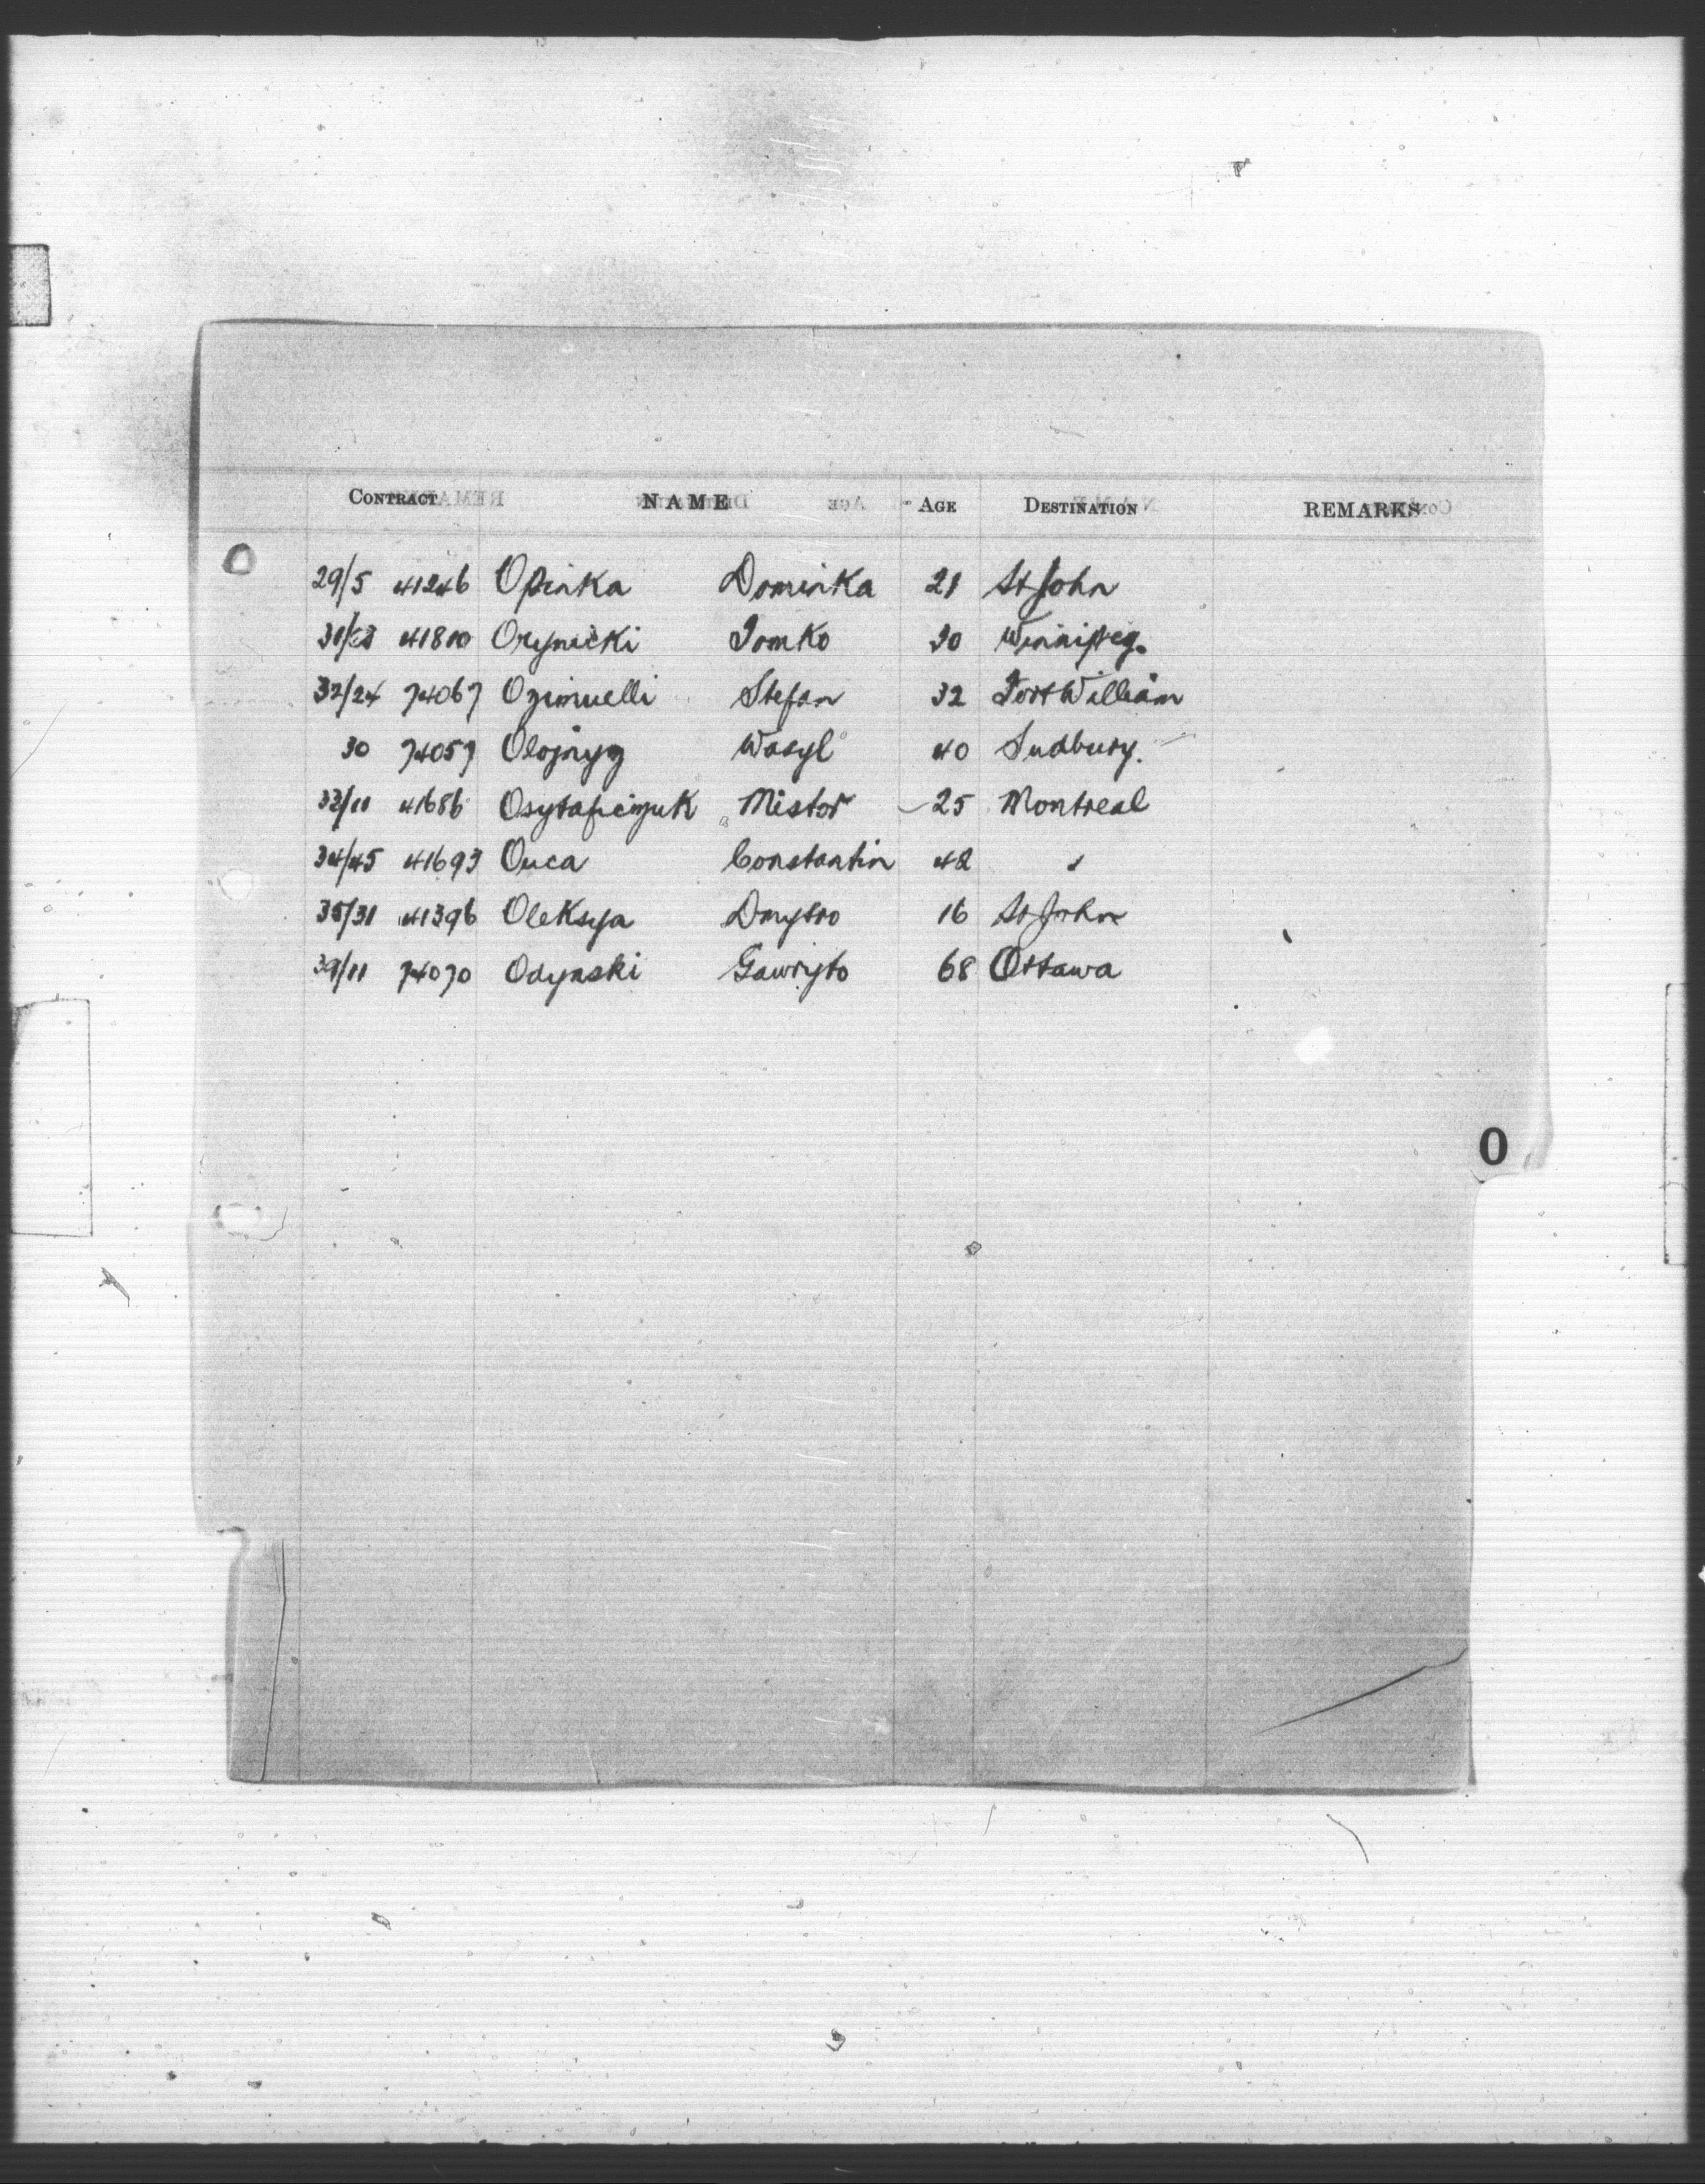 CONTRACT NAME AGE DESTINATION REMARKS
29/5 41246 Opinka Dominka 21 St John
31/23 41810 Orynicki Tomko 30 Winnipeg.
32/24 74067 Ozimuelli Stefan 32 Fort William
30 74057 Olojnyg Wasyl 40 Sudbury.
33/11 41686 Osytapiczuk Mistor 25 Montreal
34/45 41693 Ouca Constantin 42 "
35/31 41396 Oleksya Dmytro 16 St John
39/11 74070 Odynski Gawryto 68 Ottawa
O